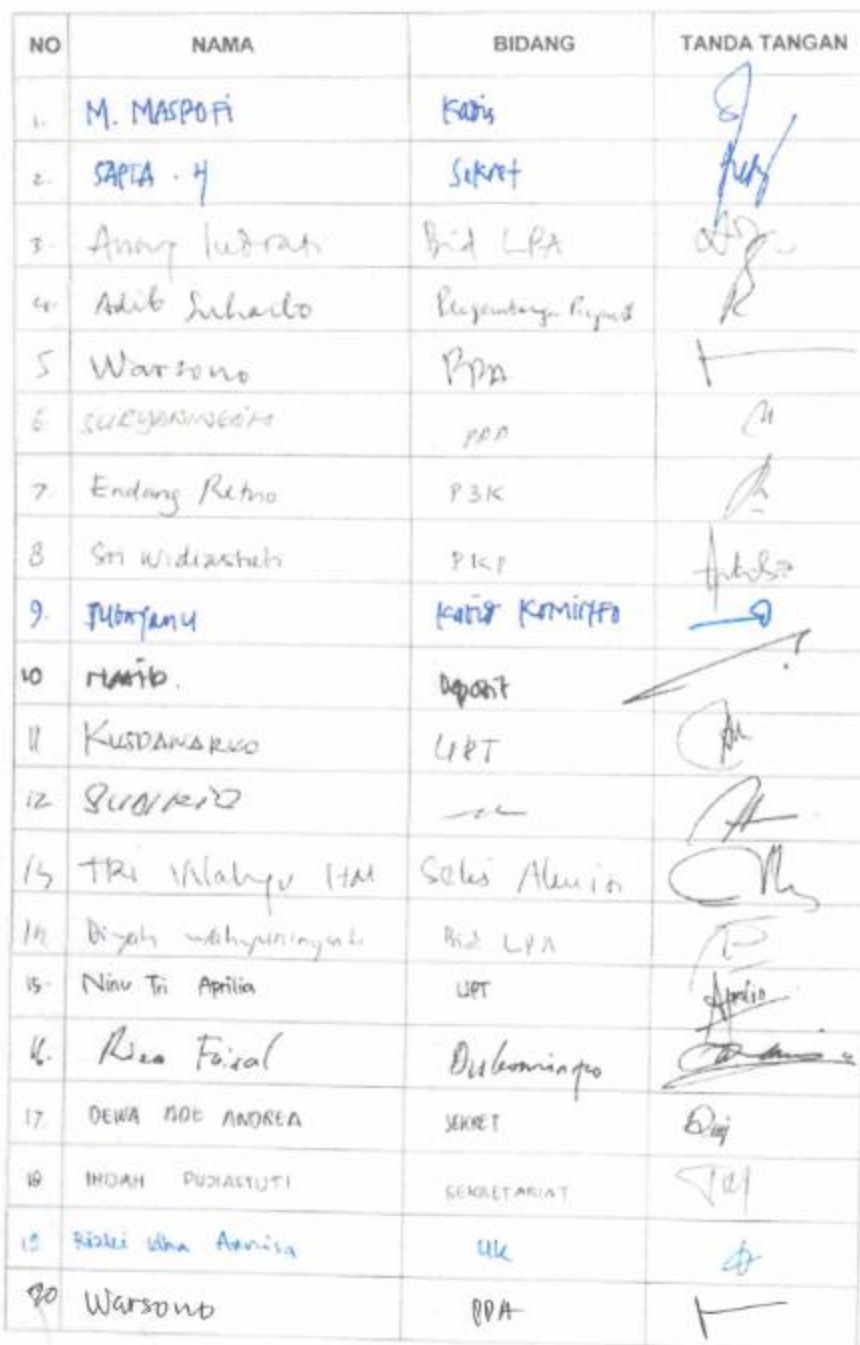 NO NAMA BIDANG TANDA TANGAN
1. M. MASPOFI Kadis
2. SAPTA . H Sekret
3. Anang Indrati Bid LPA
4. Adib Suharto
5 Warsono PPA
6 SURYANINGSIH PPA
7. Endang Retno P3K
8 Sri Widiastuti PKP
9. Kadis KOMINFO
10 Deposit
11 KUSDANARKO UPT
12
13 TRI Wahyu
14 Diyah Wahyuningsih Bid LPA
15. Ninu Tri Aprilia UPT Aprilia
16. Faisal Diskominfo
17 DEWA ADE ANDREA SEKRET
18 INDAH PUJIASTUTI SEKRETARIAT
19 Annisa UK
20 Warsono PPA